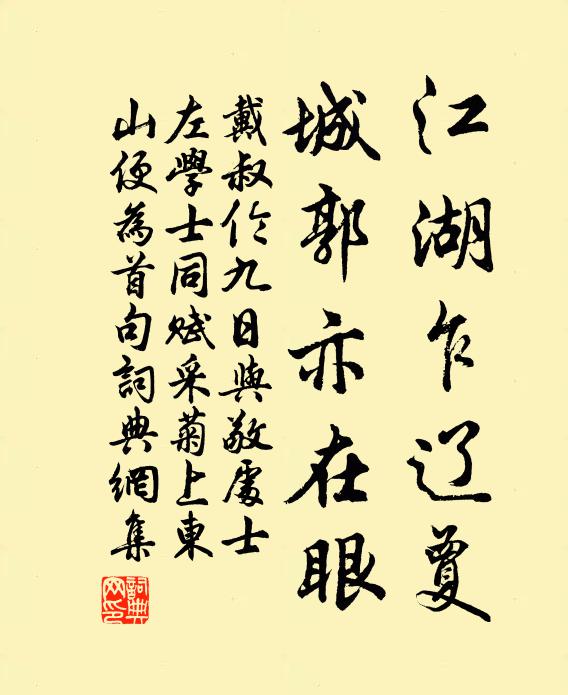 江湖乍辽夐
城郭亦在眼
戴叔伦九日與敬處士
左學士同賦采菊上東
山便為首句詞典網集
詞典網印